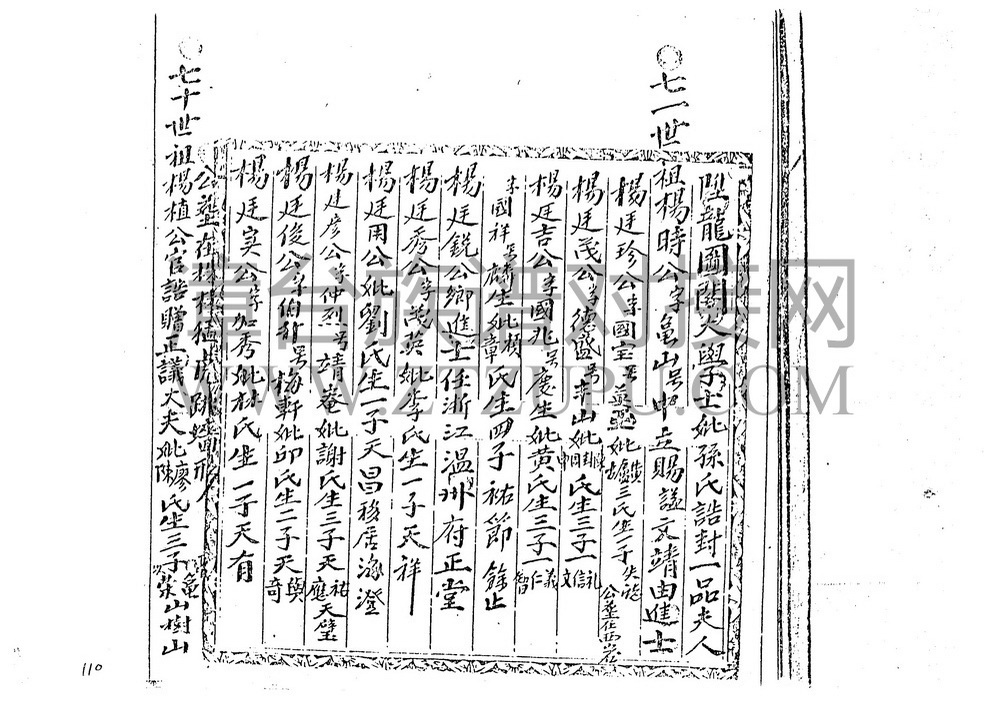 陞龍圖閣大學士妣孫氏誥封一品夫人
七一世祖楊時公字龜山号中立賜諡文靖由進士
楊廷珍公字國宝号 妣黃 三氏生一子失
公葬在西岩
楊廷茂公字德盛号 山妣 氏生三子一 禮信文
楊廷吉公字國兆号慶生妣黃氏生三子一義仁智
字國祥号麟生妣 章氏生四子祐節餘止
楊廷銳公鄉進士任浙江溫州府正堂
楊廷秀公字茂英妣李氏生一子天祥
楊廷用公妣劉氏生一子天昌移居海澄
楊廷彥公字仲烈号靖菴妣謝氏生三子天祐應天璧
楊廷俊公字伯 号梅軒妣邱氏生二子天與奇
楊廷實公字加秀妣林氏生一子天有
公葬在 猛虎跳墻形
七十世祖楊植公官誥贈正議大夫妣廖陳氏生三子 龜山樹山
110
臺台族譜对接网
WWW.ZTZUPU.COM